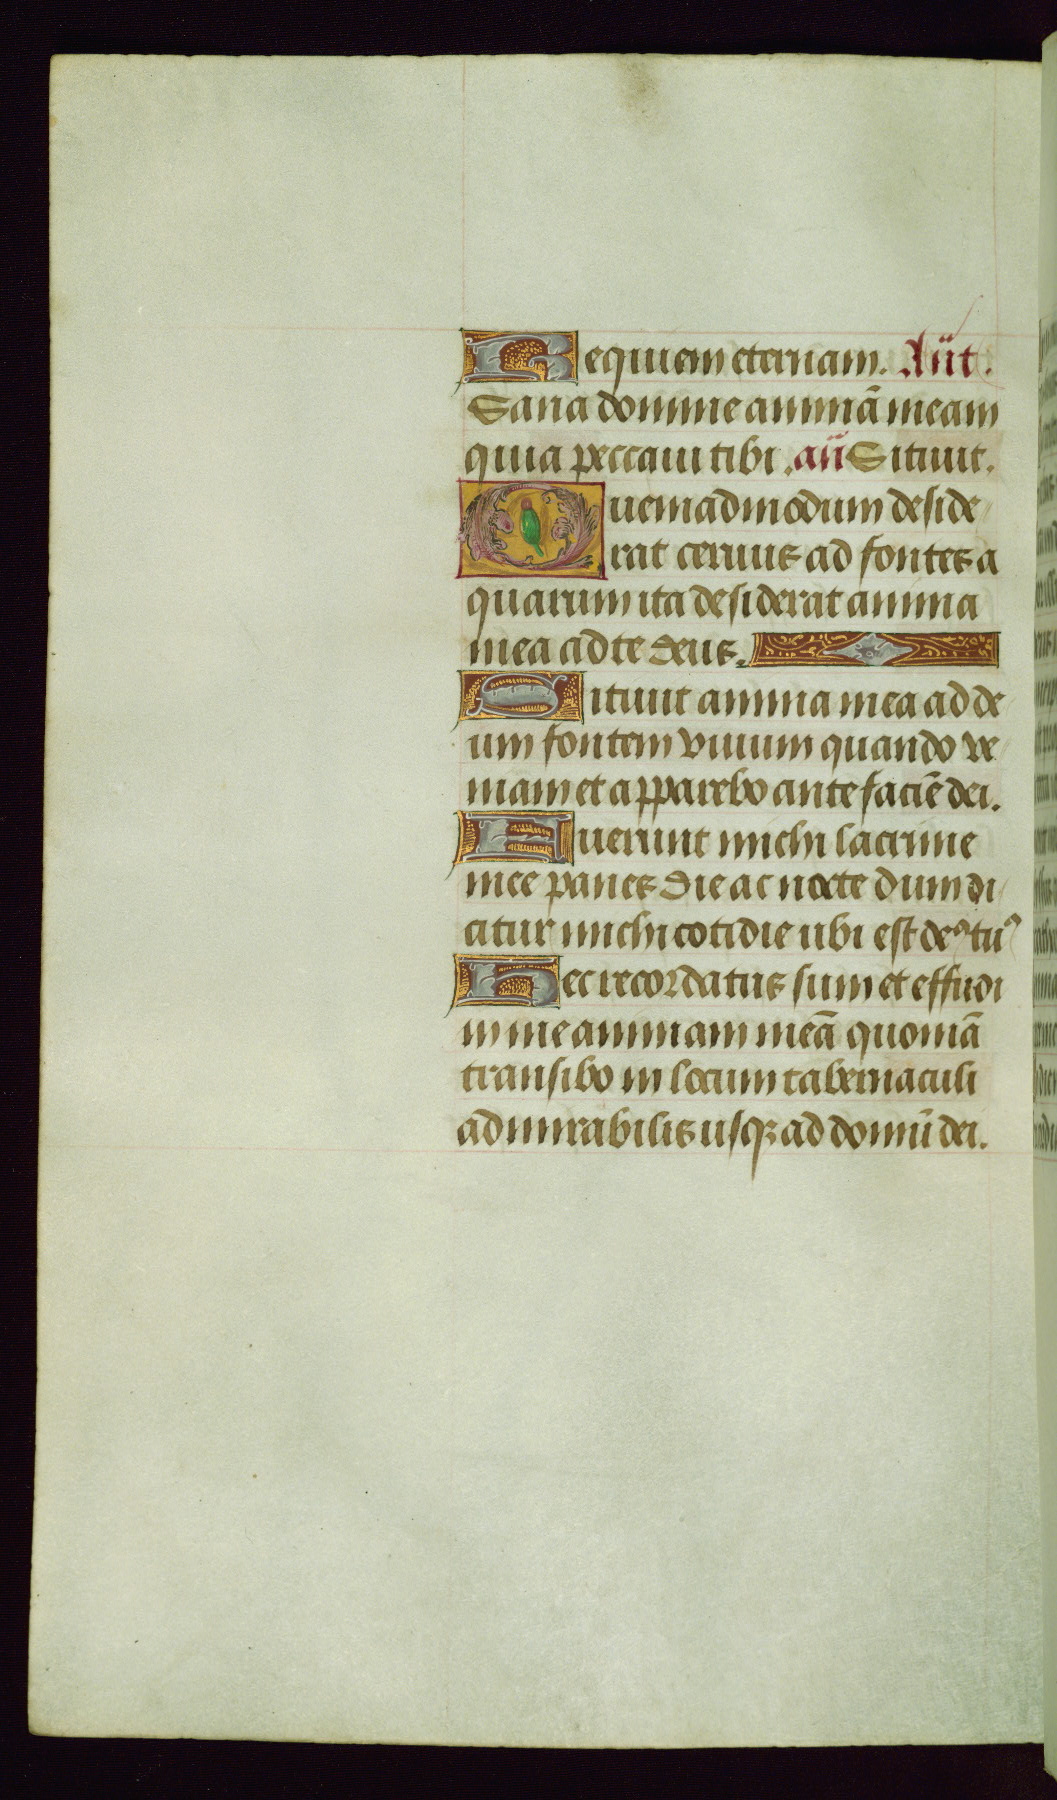 Requiem eternam. Añt.
Sana domine animā meam
quia peccaui tibi. añ Sitiuit.
Quemadmodum deside
rat ceruus ad fontes a
quarum ita desiderat anima
mea ad te deus.
Sitiuit anima mea ad de
um fontem viuum quando ve
niam et apparebo ante faciē dei.
Fuerunt michi lacrime
mee panes die ac nocte dum di
citur michi cotidie ubi est deꝰ tuꝰ
Hec recordatus sum et effudi
in me animam meā quoniā
transibo in locum tabernaculi
admirabilis usqꝫ ad domū dei.